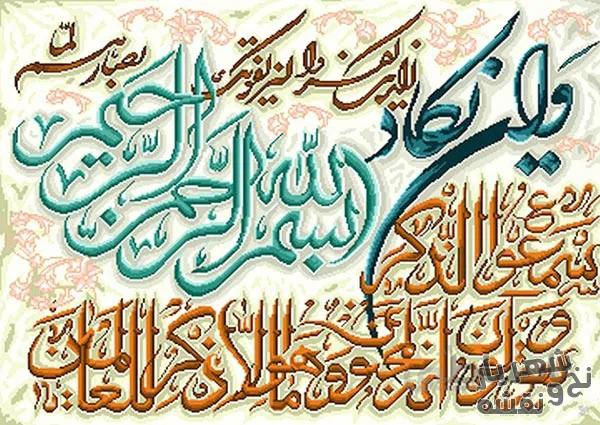 بسم الله الرحمن الرحیم
وان یکاد الذین کفروا لیزلقونک بابصارهم لما
سمعوا الذکر
ویقولون انه لمجنون وما هو الا ذکر للعالمین
نخ و نقشه